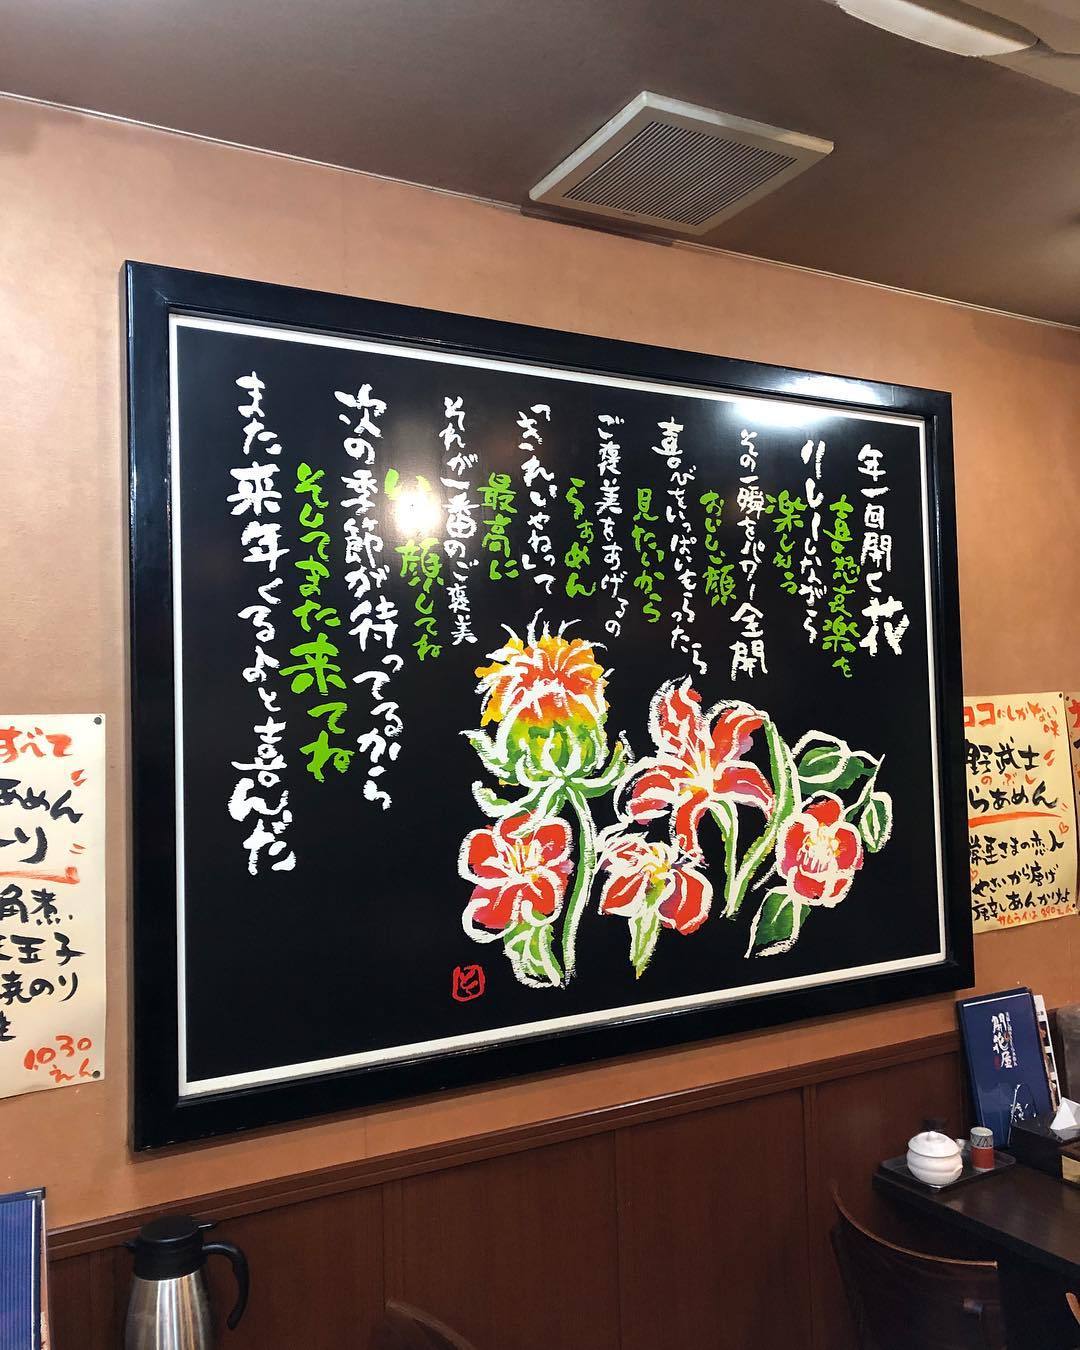 年一回開く花
喜怒哀楽を
リレーしながら
楽しもう
その一瞬をパワー全開
おいしい顔
喜びをいっぱいもらったら
見たいから
ご褒美をあげるの
らぁめん
「きれいやねって
最高に
それが一番のご褒美
顔してね
次の季節が待ってるから
そしてまた来てね
また来年くるよと喜んだ
すべて
あめん
角煮
玉子
焼のり
1,030
えん
ココにしかない
味
野武士
のぶし
らぁめん
さまの恋人
やさいから揚げ
あんかりよ
開花屋